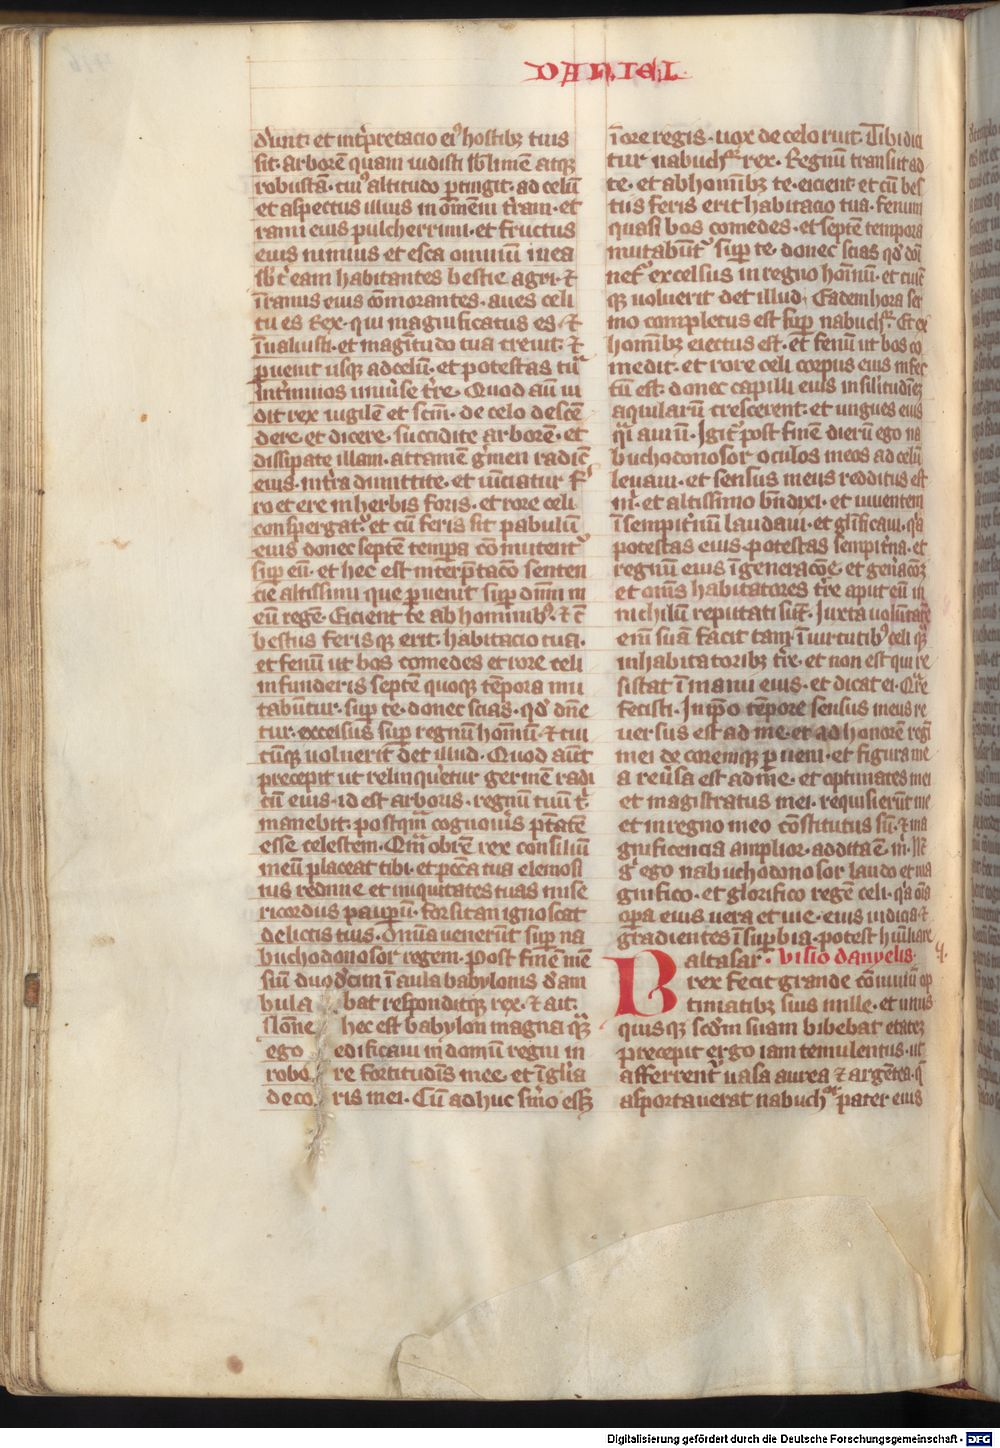 DANIEL
d'unt. et int'pretacio ei' hostibꝫ tuis
sit. arborē quam uidisti sb'limē atqꝫ
robustā. cui' altitudo ꝑtingit. ad celū
et aspectus illius in om̄em t'ram. et
rami eius pulcherrimi. et fructus
eius nimius et esca omniū in ea
sb't' eam habitantes bestie agri. ⁊
ī ramis eius cōmorantes. aues celi
tu es Rex. qui magnificatus es. ⁊
īualuisti. et magͥtudo tua creuit. ⁊
ꝑuenit usqꝫ ad celū. et potestas tua
in t'minos uniu'se t're. Quod aūt ui
dit rex uigilē et sc̄m. de celo descē
dere et dicere. succidite arborē. et
dissipate illam. attamē g'men radiē
eius. in t'ra dimittite. et uīciatur f'
ro et ere in herbis foris. et rore celi
conspergat᷑. et cū feris sit pabulū
eius donec septē tempa cōmutent᷑
suꝑ eū. et hec est interp̄tacō senten
cie altissimi que ꝑuenit suꝑ dn̄m m
eū regē. Eicient te ab hominibꝫ. ⁊ c̄
bestiis ferisqꝫ erit. habitacio tua.
et fenū ut bos comedes et rore celi
infunderis septē quoqꝫ tēpora mu
tabūtur. suꝑ te. donec scias. qd' dn̄e
tur. excelsus suꝑ regnum hominū. ⁊ cui
cūqꝫ uoluerit det illud. Quod aūt
precepit ut relinqueretur germē radi
cū eius. id est arboris. regnū tuū t'
manebit. postqm̄ cognouīs p̄tatē
esse celestem. Qm̄ obrē rex consiliū
meū placeat tibi. et pcc̄a tua elemosi
nis redime et iniquitates tuas mise
ricordiis pauꝑū. forsitan ignoscat
delictis tuis. Om̄ia uenerūt suꝑ na
buchodonosor regem. Post finē mē
siū duodecim ī aula babylonis deam
bula bat responditqꝫ rex. ⁊ ait.
Nōne hec est babylon magna quā
ego edificaui in domū regni in
robo re fortitudīs mee et ī gl'ia
deco ris mei. Cū adhuc s'mo ess'
ī ore regis. uox de celo ruit. Tibi dici
tur nabuch' rex. Regnū transit a
te. et ab hominibꝫ te. eicient et cū bes
tiis feris erit habitacio tua. fenum
quasi bos comedes. et septē tempora
mutabūt᷑ suꝑ te. donec scias qd' domi
net᷑ excelsus in regno hominū. et cuicū
qꝫ uoluerit det illud. Eadem hora ser
mo completus est suꝑ nabuch'. Et ex
hominibꝫ eiectus est. et fenū ut bos co
medit. et rore celi corpus eius infec
tū est. donec capilli eius in similitudinē
aquilarū crescerent. et ungues eius
qͣi auiū. Igit᷑ post finē dierū ego na
buchodonosor oculos meos ad celū
leuaui. et sensus meus redditus est
m'. et altissimo bn̄dixi. et uiuentem
ī sempit'nū laudaui. et gl'ificaui. qͥa
potestas eius. potestas sempit'na. et
regnū eius ī generacōe. et gen̄acōꝫ
et om̄s habitatores t're aput eū in
nichilū reputati sūt. Iuxta uolūtatē
enī suā facit tam ī uirtutibꝫ celi qͣꝫ
inhabitatoribꝫ t're. et non est qui re
sistat ī manu eius. et dicat ei. Qͣre
fecisti. In ip̄o tēpore sensus meus re
uersus est ad me. et ad honorē regni
mei decoremqꝫ ꝑueni. et figura me
a reu'sa est ad me. et optimates mei
et magistratus mei. requisierūt me
et in regno meo cōstitutus sū. ⁊ ma
gnificencia amplior. addita ē. m'. Nc̄
gͦ ego nabuchodonosor laudo et ma
gnifico. et glorifico regē celi. qͥa om̄ia
oꝑa eius uera et uie. eius iudicia. ⁊
gradientes ī suꝑbia. potest humiliare
Baltasar. Visio danyelis.
rex fecit grande cōuiuiū op
timatibꝫ suis mille. et unus
quisqꝫ scd'm suam bibebat etatē
precepit ergo iam temulentus. ut
afferrent᷑ uasa aurea ⁊ argētea. q̄
asportauerat nabuch' pater eius
Digitalisierung gefördert durch die Deutsche Forschungsgemeinschaft - DFG